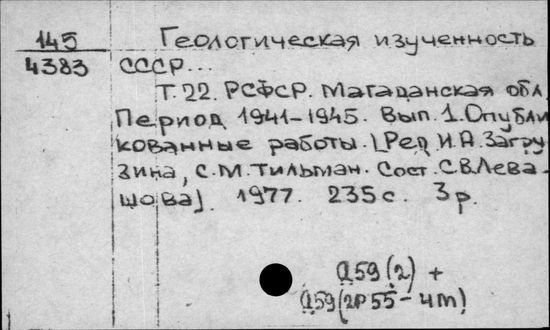 145
4383
Геологическая изученность
СССР...
Т. 22. РСФСР. Магаданская обл.
Период 1941-1945. Вып. 1. Опубли
кованные работы. [Ред И.А. Загру
зина, С.М. Тильман. Сост. С.В. Лева-
шова]. 1977. 235 с. 3 р.
Д59(2) +
Д59(2Р55-4М)